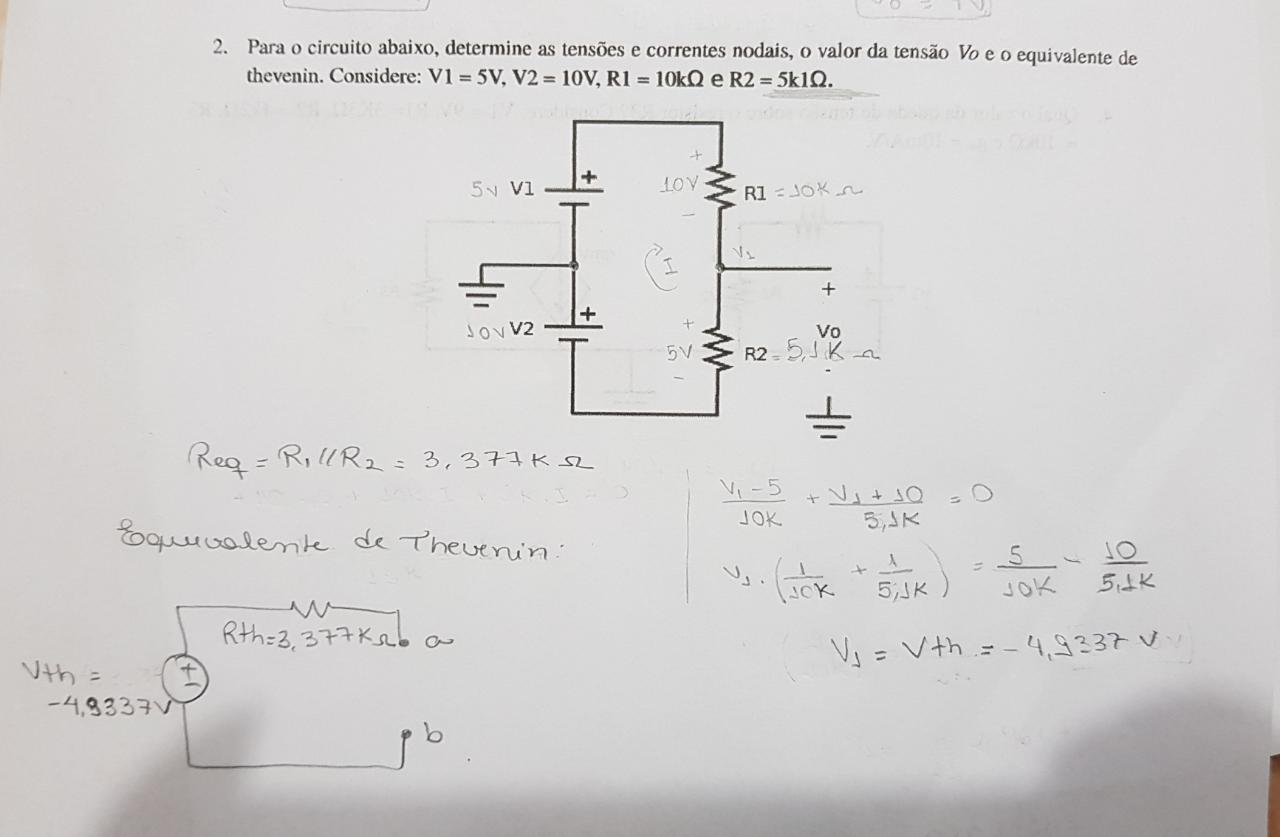 2. Para o circuito abaixo, determine as tensões e correntes nodais, o valor da tensão Vo e o equivalente de
thevenin. Considere: V1 = 5V, V2 = 10V, R1 = 10kΩ e R2 = 5k1Ω.
5V V1
+
+
10V
-
R1 = 10K Ω
I
V1
+
Vo
-
10V V2
+
+
5V
-
R2 = 5,1K Ω
Req = R1 // R2 = 3,377K Ω
Equivalente de Thevenin:
Rth=3,377KΩ
a
Vth =
-4,9337V
+
-
b
V1 - 5 / 10K + V1 + 10 / 5,1K = 0
V1 . ( 1 / 10K + 1 / 5,1K ) = 5 / 10K - 10 / 5,1K
V1 = Vth = - 4,9337 V